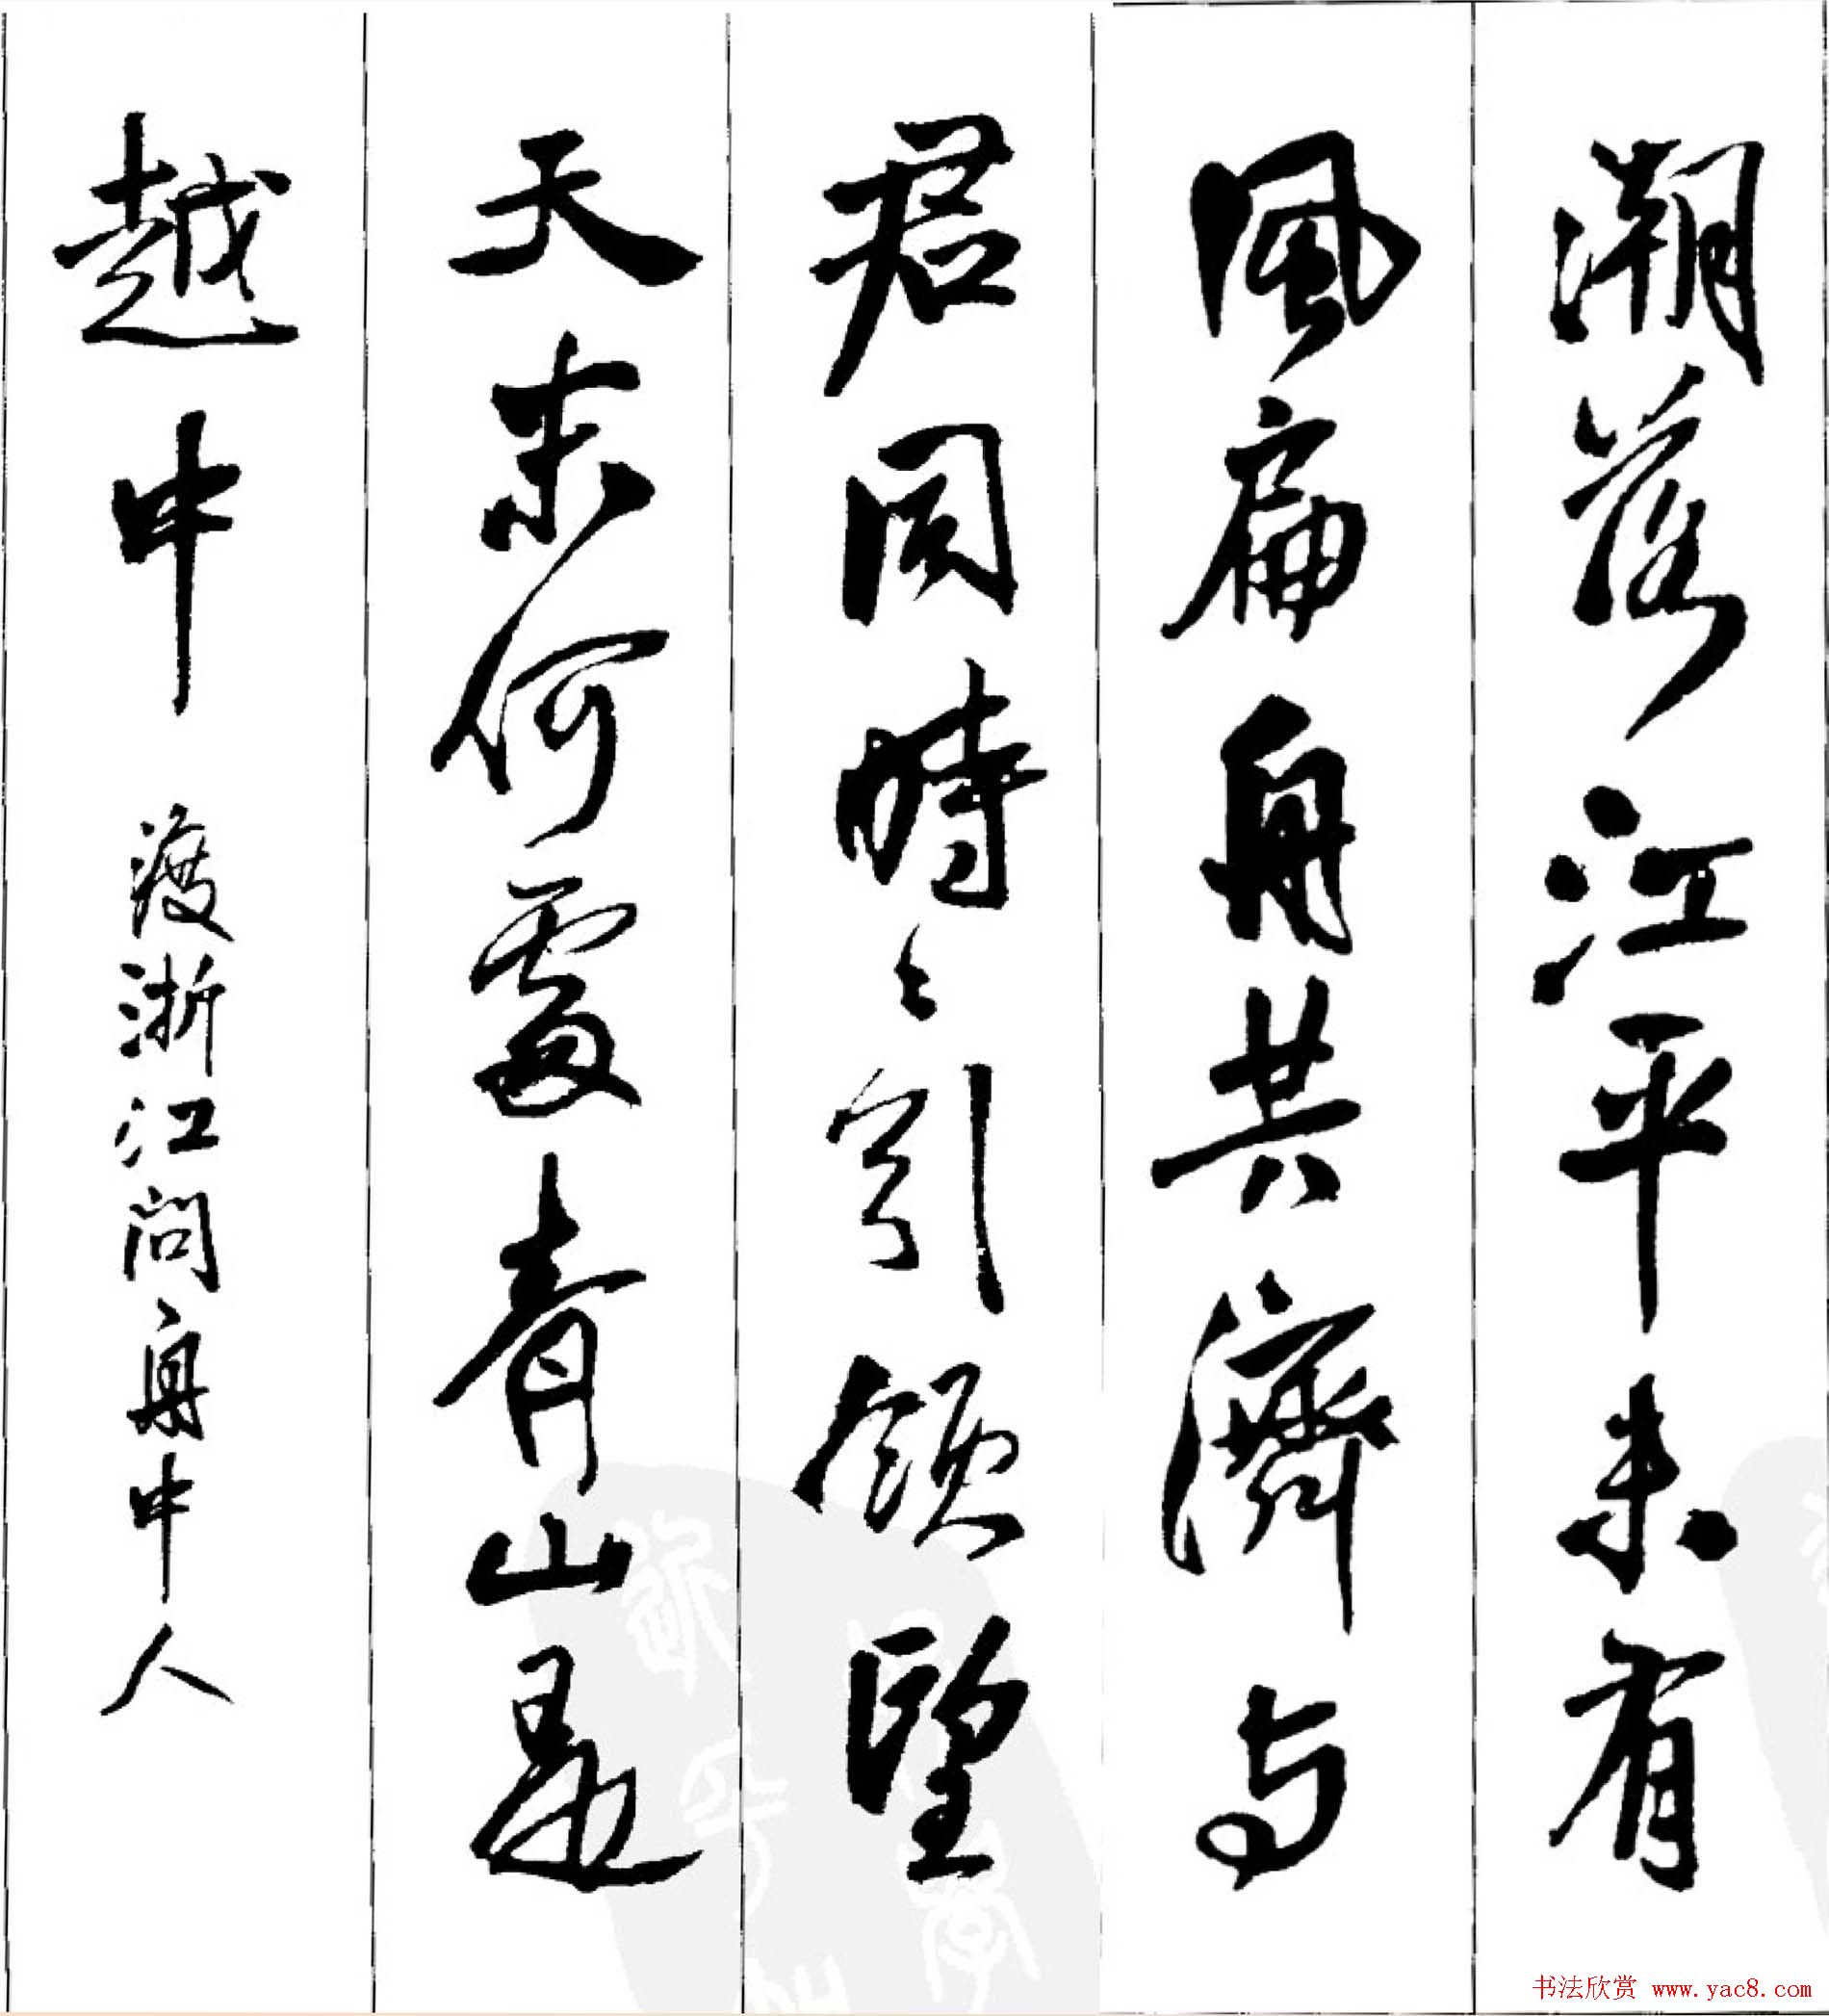 潮落江平未有
風扁舟共濟与
君同時〻引領望
天末何處青山是
越中
渡浙江问舟中人
书法欣赏 www.yac8.com